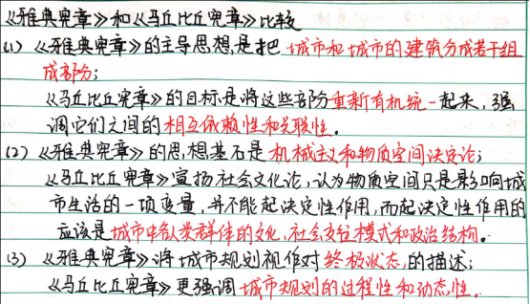 《雅典宪章》和《马丘比丘宪章》比较
(1)《雅典宪章》的主导思想,是把城市和城市的建筑分成若干组
成部分;
《马丘比丘宪章》的目标是将这些部分重新有机统一起来,强
调它们之间的相互依赖性和关联性。
(2)《雅典宪章》的思想基石是机械主义和物质空间决定论;
《马丘比丘宪章》宣扬社会文化论,认为物质空间只是影响城
市生活的一项变量,并不能起决定性作用,而起决定性作用的
应该是城市中各人类群体的文化、社会交往模式和政治结构。
(3)《雅典宪章》将城市规划视作对终极状态的描述;
《马丘比丘宪章》更强调城市规划的过程性和动态性。